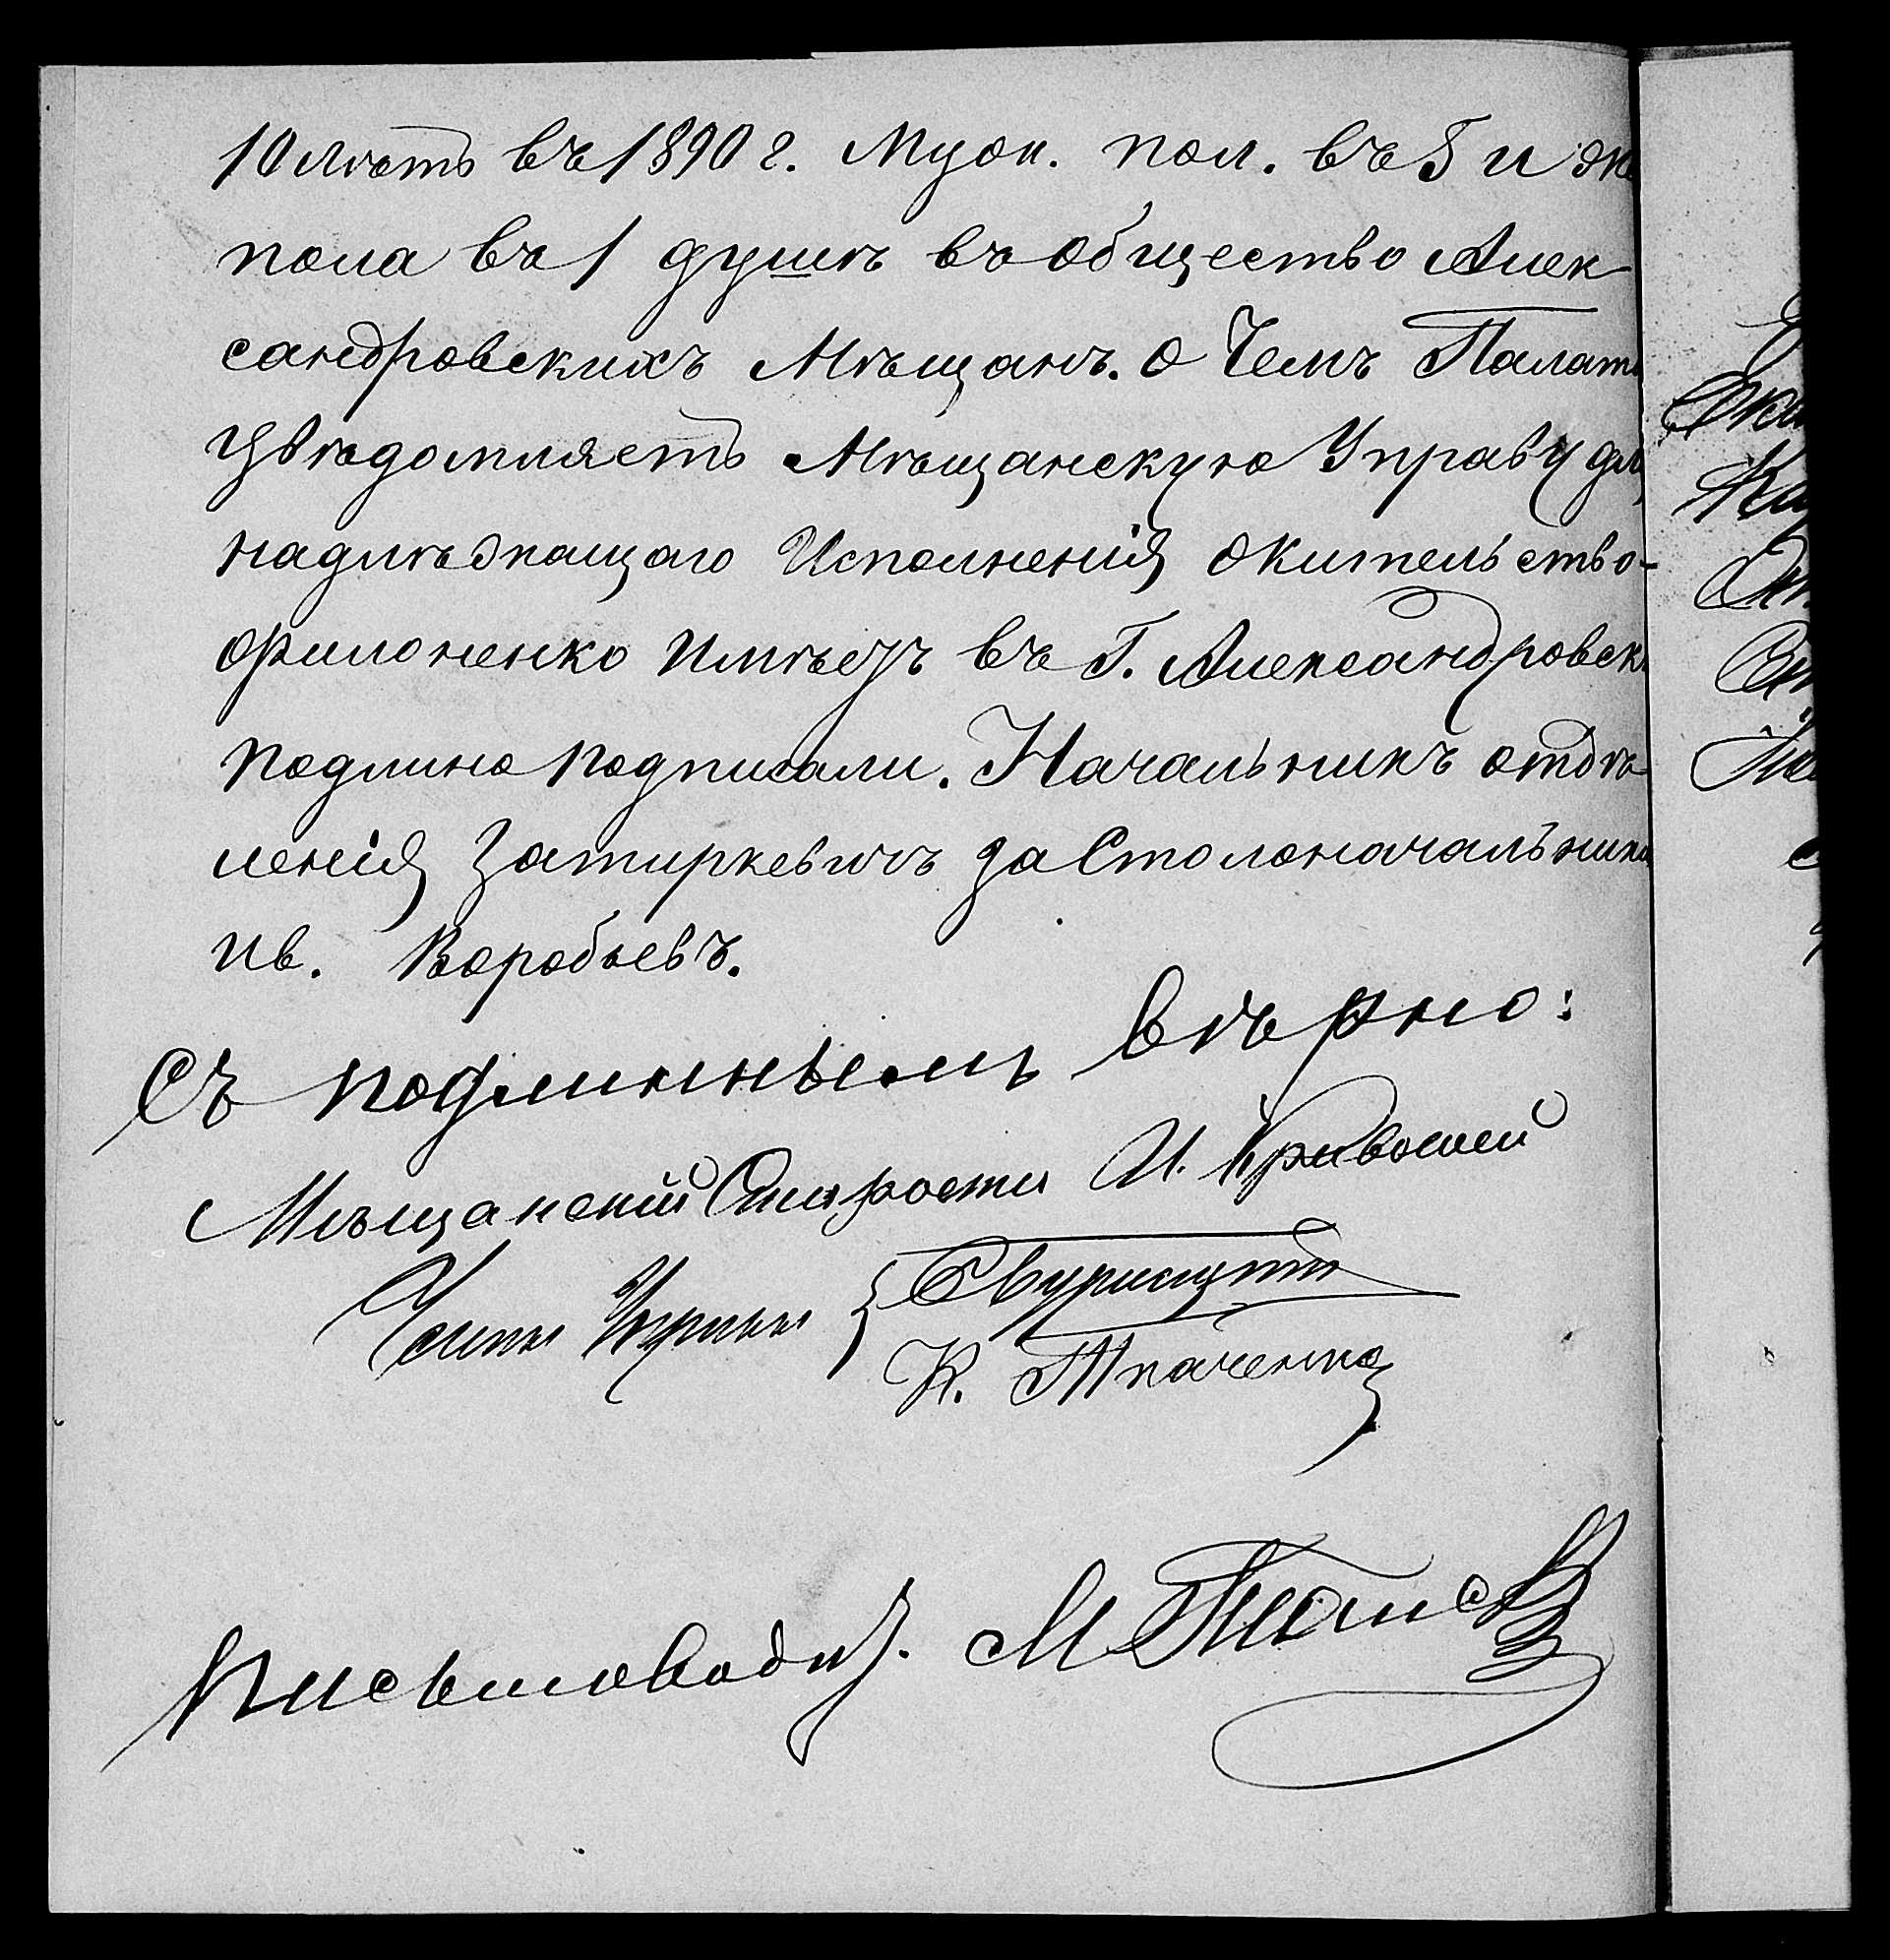 10 лѣтъ въ 1890 г. Муж. пол. въ 5 и же
пола въ 1 душѣ въ общество Алек
сандровскихъ Мѣщанъ. о Чемъ Палата
увѣдомляетъ Мѣщанскую Управу для
надлѣжащаго Исполненія жительство-
Филоненко Имѣетъ въ Г. Александровск
подлино подписали. Начальникъ отдѣ
ленія Затиркевичъ за Столоначальника
Ив. Воробьевъ.
Съ подлиннымъ вѣрно:
Мѣщанскій Староста И. Кривошей
Члены Управы
К. Ткаченко
Письмовод. М